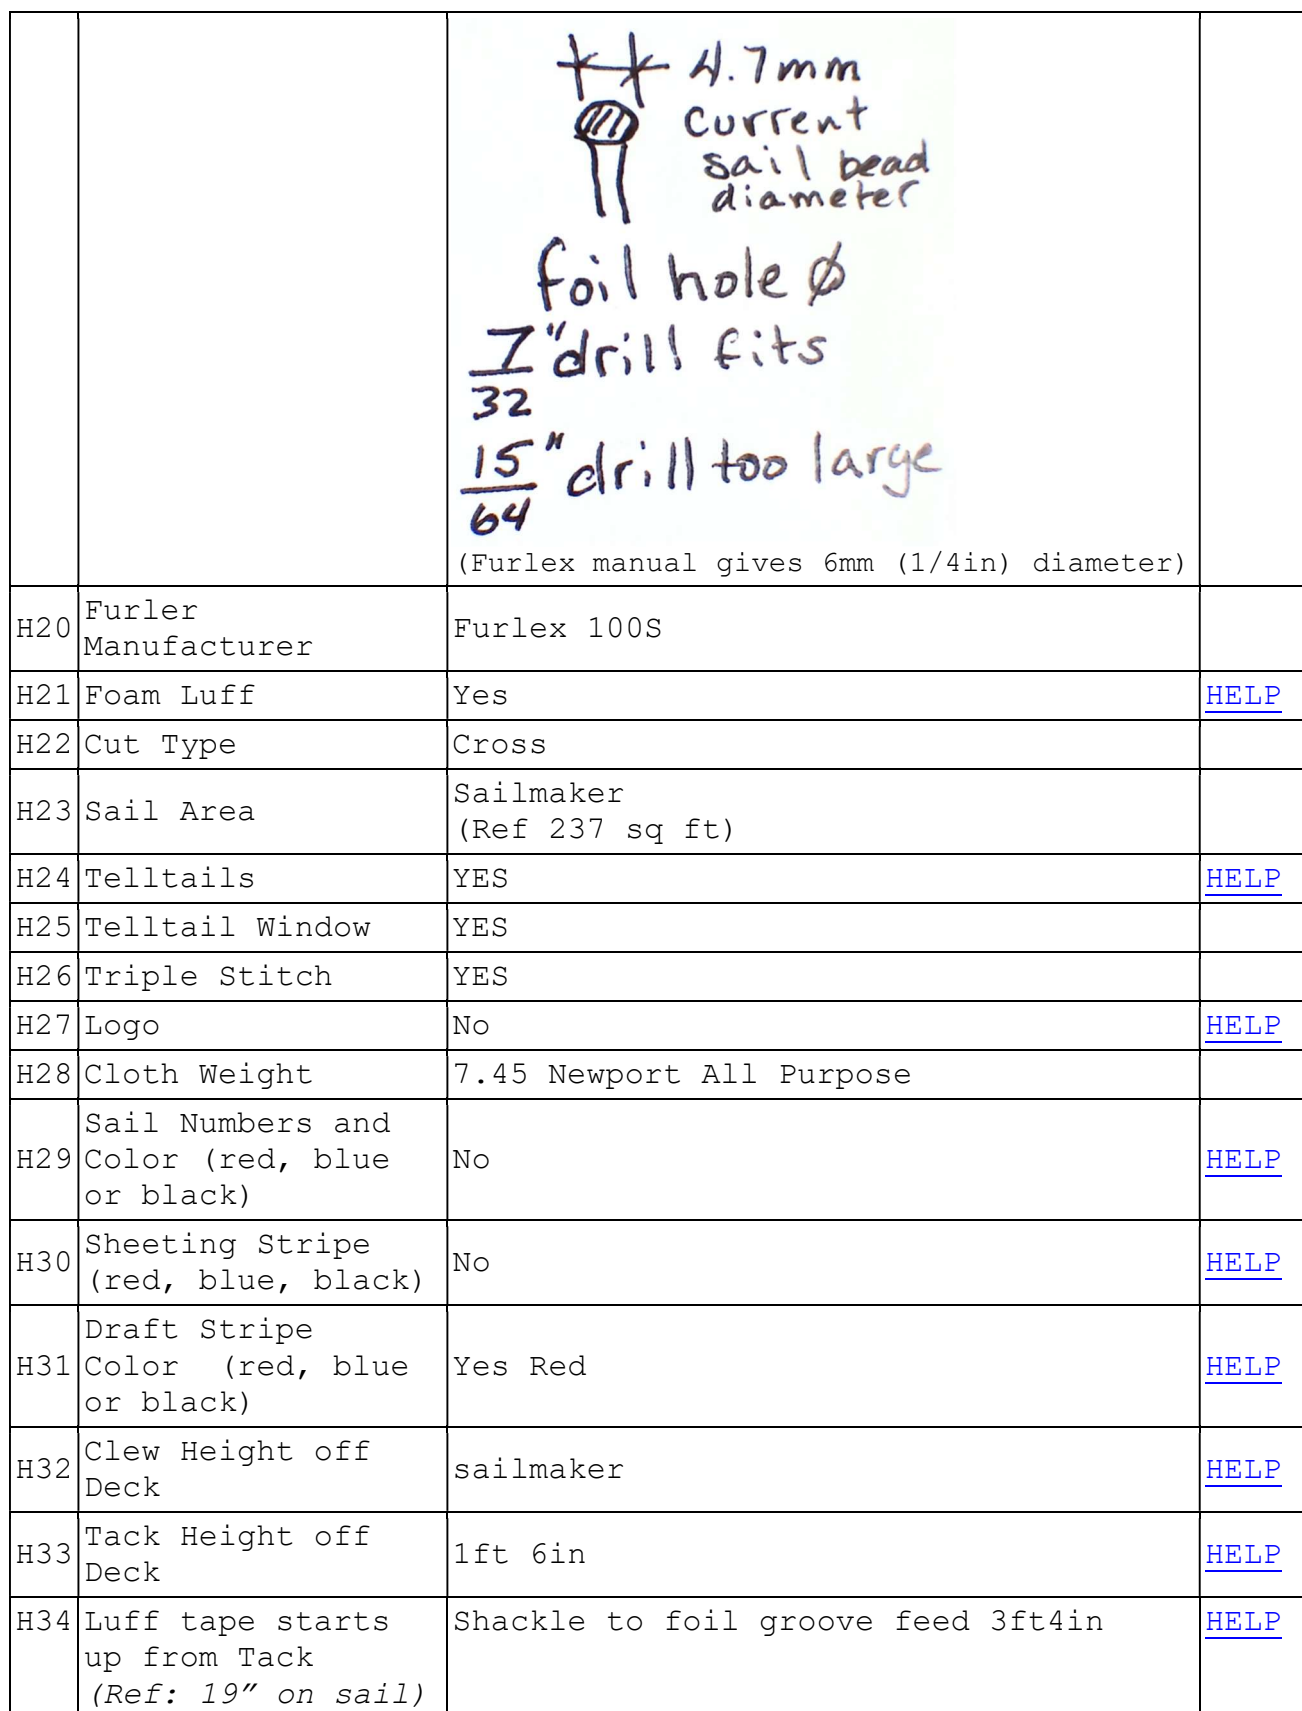 4.7mm
current
sail bead
diameter
foil hole ø
7" drill fits
32
15" drill too large
64
(Furlex manual gives 6mm (1/4in) diameter)
H20 Furler Manufacturer Furlex 100S
H21 Foam Luff Yes HELP
H22 Cut Type Cross
H23 Sail Area Sailmaker
(Ref 237 sq ft)
H24 Telltails YES HELP
H25 Telltail Window YES
H26 Triple Stitch YES
H27 Logo No HELP
H28 Cloth Weight 7.45 Newport All Purpose
H29 Sail Numbers and
Color (red, blue
or black) No HELP
H30 Sheeting Stripe
(red, blue, black) No HELP
H31 Draft Stripe
Color (red, blue
or black) Yes Red HELP
H32 Clew Height off
Deck sailmaker HELP
H33 Tack Height off
Deck 1ft 6in HELP
H34 Luff tape starts Shackle to foil groove feed 3ft4in HELP
up from Tack
(Ref: 19” on sail)